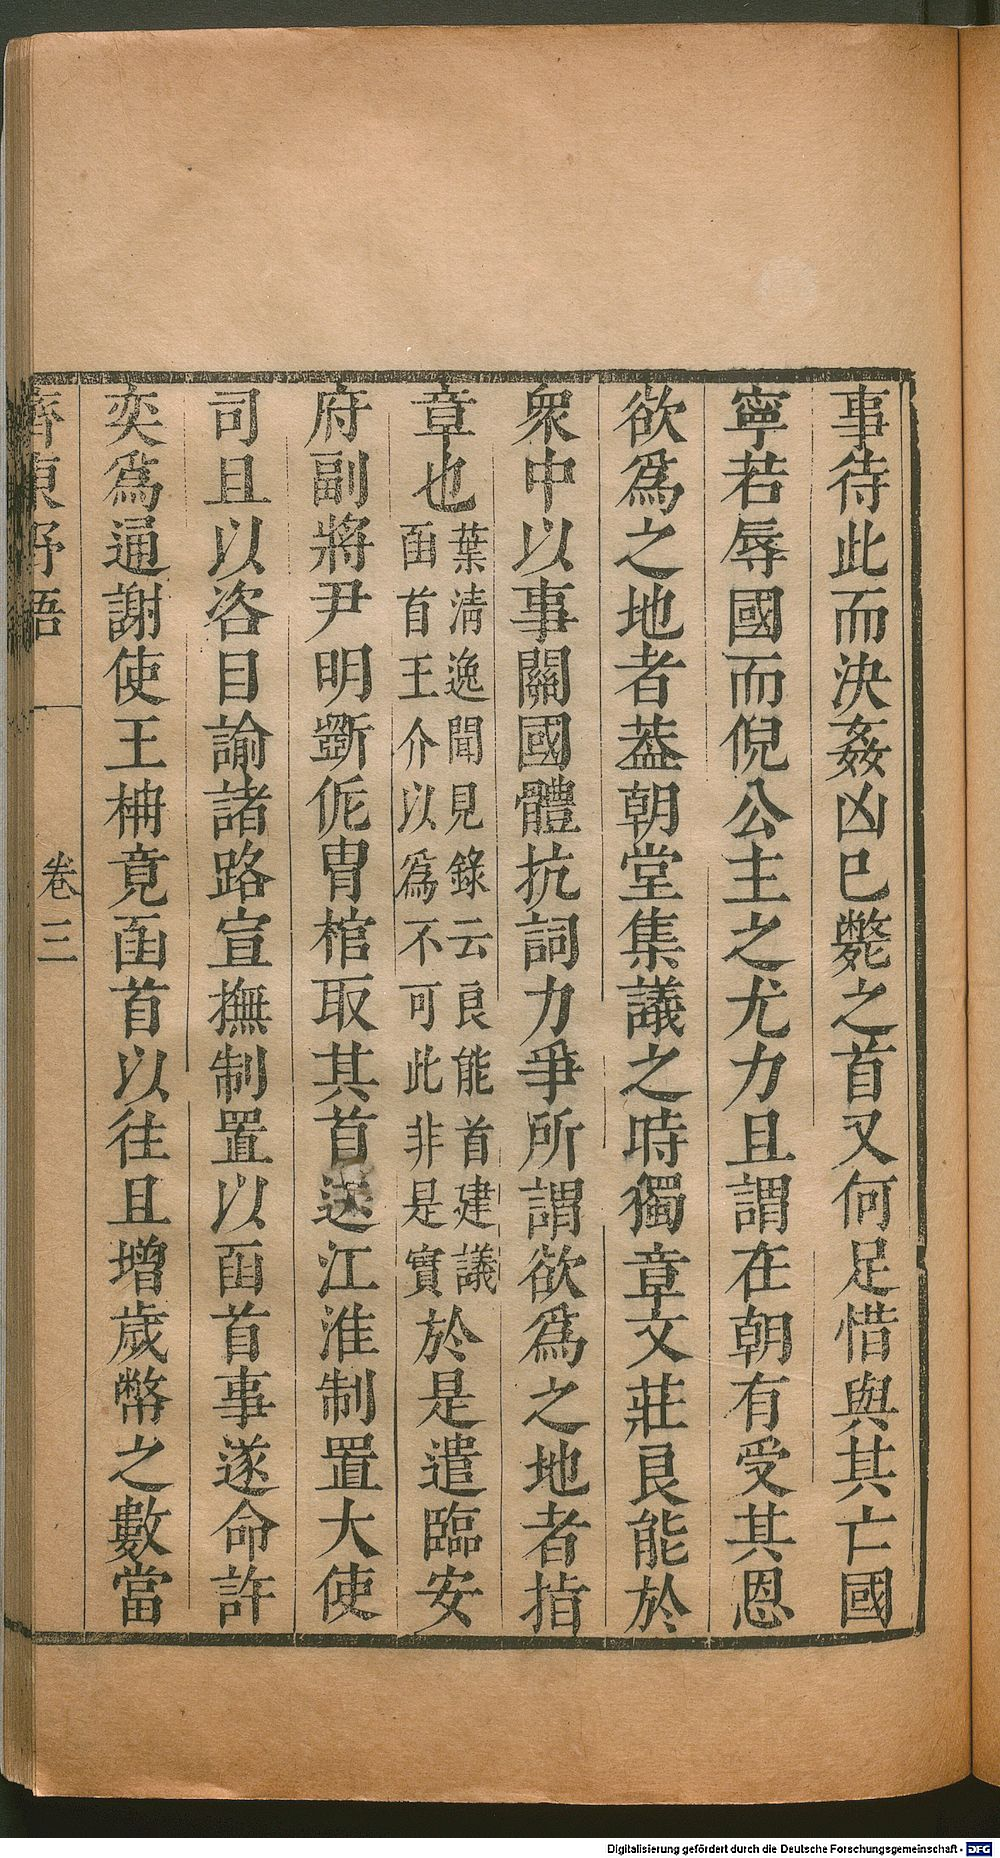 事待此而決姦凶已斃之首又何足惜與其亡國
寧若辱國而倪公主之尤力且謂在朝有受其恩
欲爲之地者葢朝堂集議之時獨章文莊良能於
衆中以事關國體抗詞力爭所謂欲爲之地者指
章也葉清逸聞見錄云良能首建議函首王介以爲不可此非是實於是遣臨安
府副將尹明斲侂冑棺取其首送江淮制置大使
司且以咨目諭諸路宣撫制置以函首事遂命許
奕爲通謝使王柟竟函首以往且增歲幣之數當
齊東野語 卷三
Digitalisierung gefördert durch die Deutsche Forschungsgemeinschaft - DFG